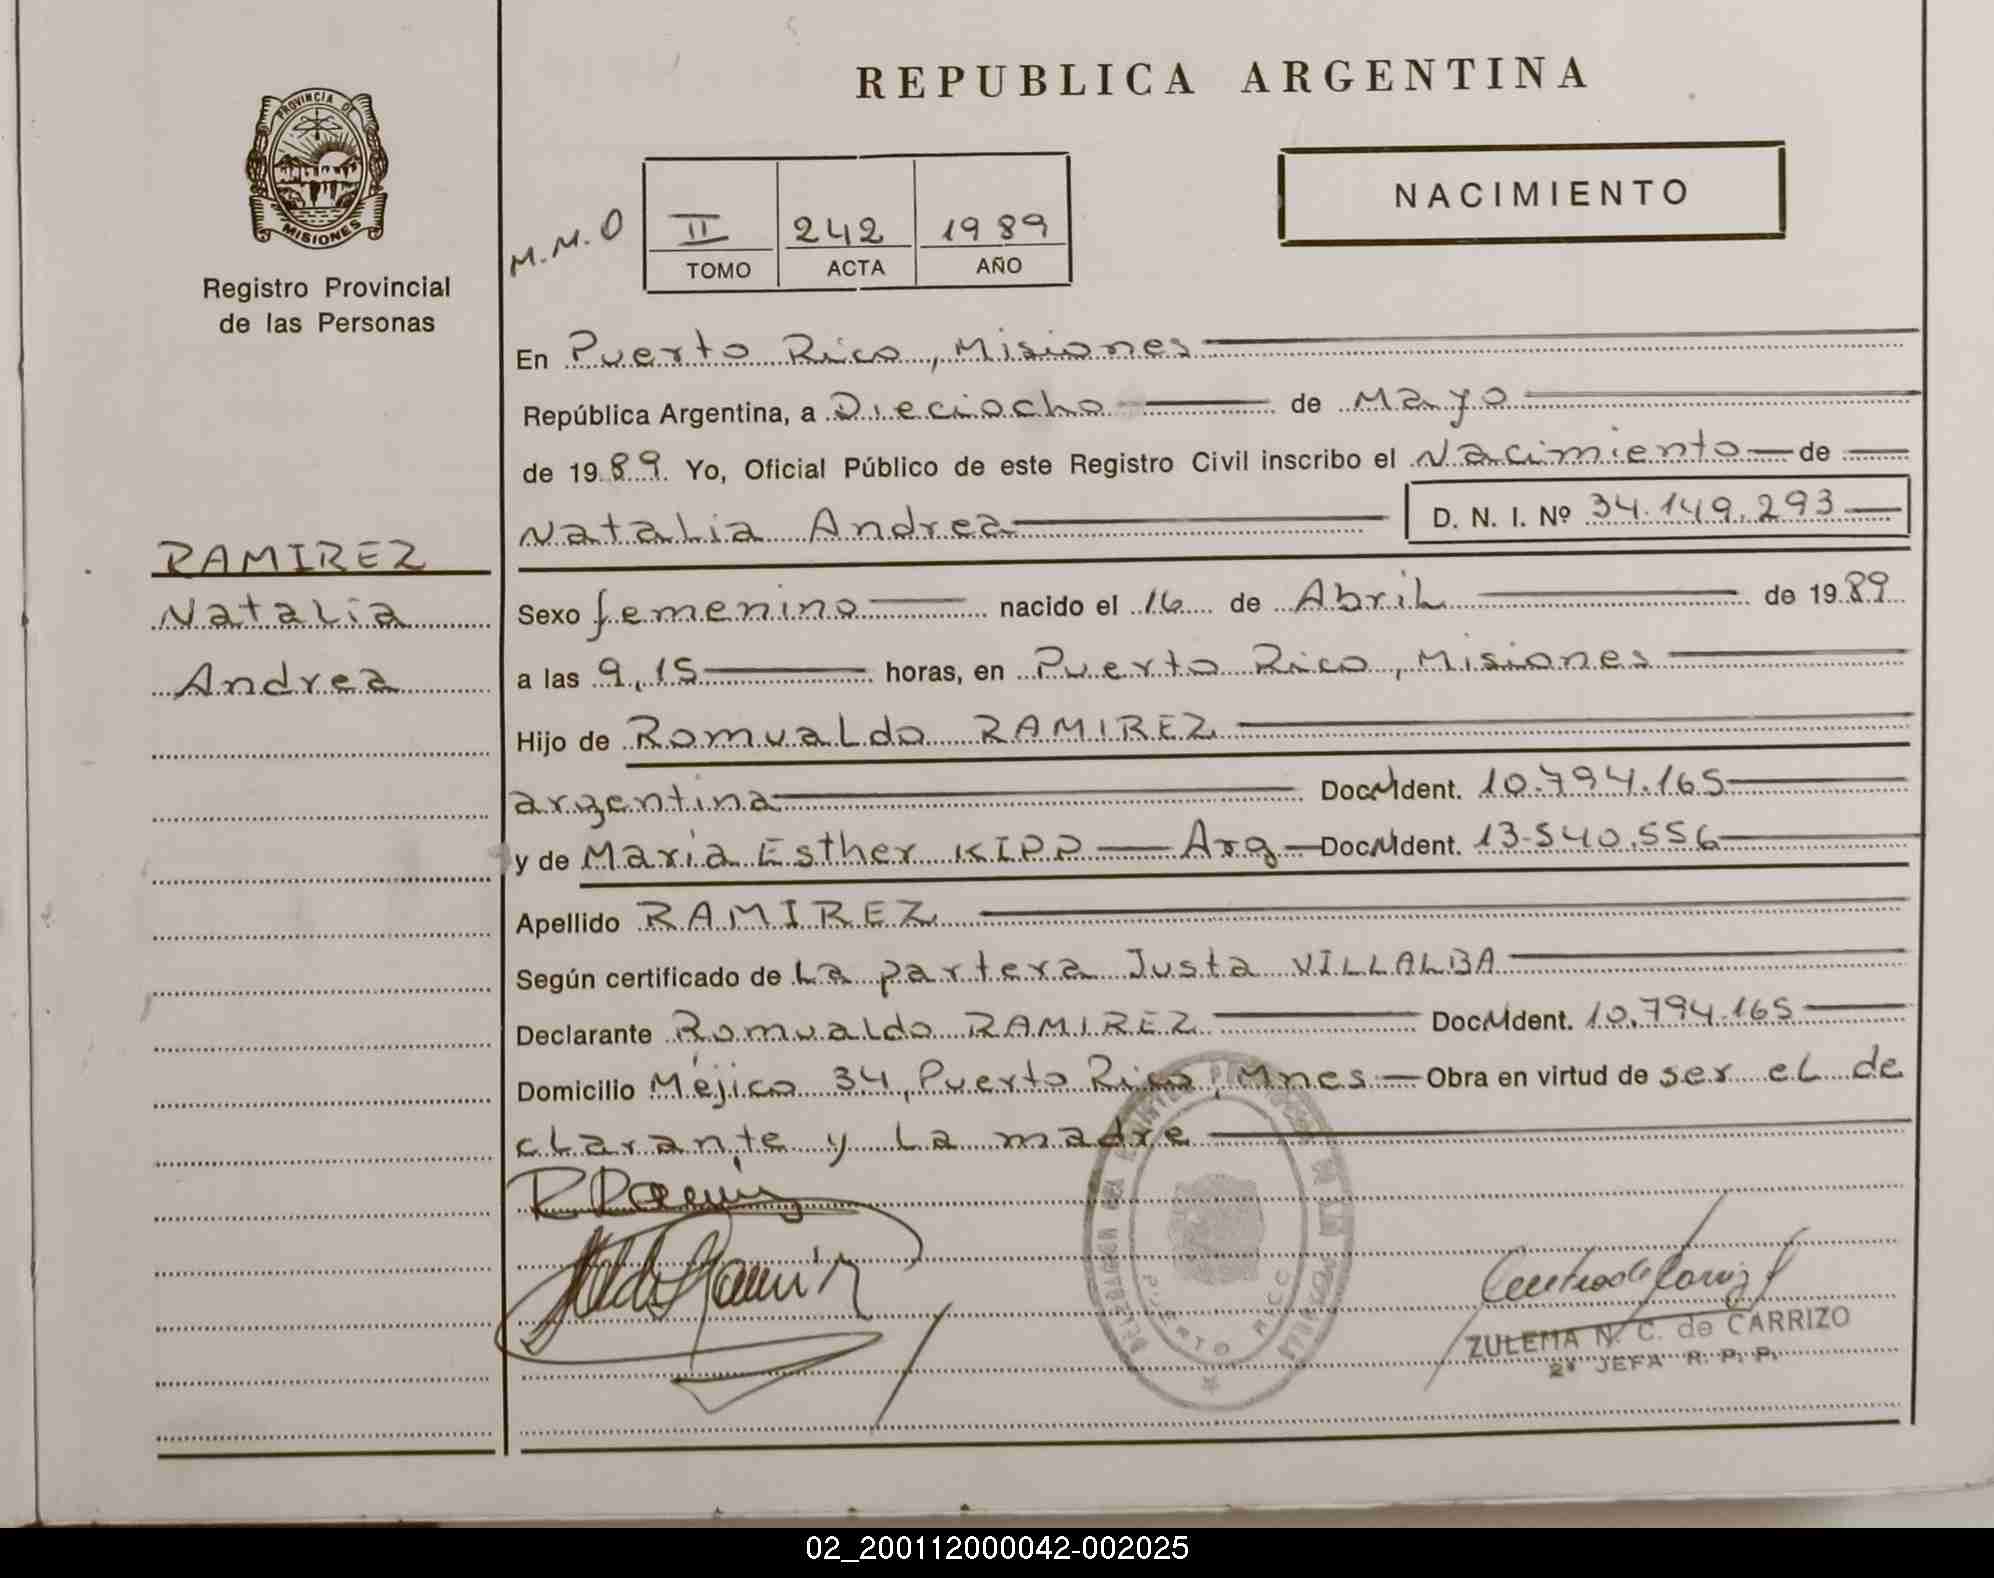 REPUBLICA ARGENTINA
PROVINCIA DE
MISIONES
Registro Provincial
de las Personas
NACIMIENTO
M.M.O
II 242 1989
TOMO ACTA AÑO
En Puerto Rico, Misiones
República Argentina, a Dieciocho de Mayo
de 1989. Yo, Oficial Público de este Registro Civil inscribo el Nacimiento de
Natalia Andrea D. N. I. Nº 34.149.293
RAMIREZ
Natalia
Andrea
Sexo femenino nacido el 16 de Abril de 1989
a las 9,15 horas, en Puerto Rico, Misiones
Hijo de Romualdo RAMIREZ
argentina Doc. Ident. 10.794.165
y de Maria Esther KIPP Arg Doc. Ident. 13.540.556
Apellido RAMIREZ
Según certificado de La partera Justa VILLALBA
Declarante Romualdo RAMIREZ Doc. Ident. 10.794.165
Domicilio Méjico 34, Puerto Rico, Mnes Obra en virtud de ser el de
clarante y La madre
PUERTO RICO
ZULEMA N. C. de CARRIZO
2ª JEFA R. P. P.
02_200112000042-002025